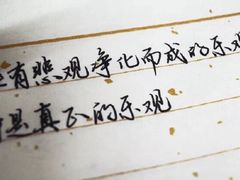 有悲观净化而成的乐观
是真正的乐观